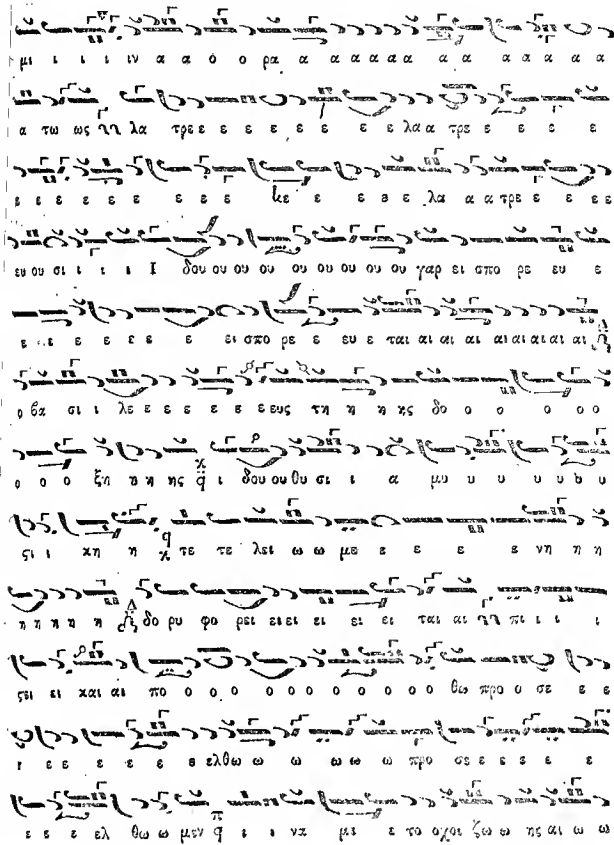 μι ι ι ι ιν α α ό ο ρα α α α α α α α α α α α α
α τω ως λα τρε ε ε ε ε ε ε ε ε ε λα α τρε ε ε ε ε
ε ε ε ε ε ε ε ε ε κε ε ε ε ε λα α α τρε ε ε ε ε
ευ ου σι ι ι ι Ι δου ου ου ου ου ου ου ου ου γαρ ει σπο ρε ευ ε
ε ε ε ε ε ε ε ει σπο ρε ε ευ ε ται αι αι αι αι αι αι αι αι
ο βα σι ι λε ε ε ε ε ε ε ευς τη η η ης δο ο ο ο ο ο
ο ο ο ξη η η ης ι δου ου θυ σι ι α μυ υ υ υ υ υ
ςι ι κη η τε τε λει ω ω με ε ε ε ε νη η η
η η η η η δο ρυ φο ρει ει ει ει ει ει ται αι πι ι ι ι
ςει ει και αι πο ο ο ο ο ο ο ο ο ο ο ο ο θω προ ο σε ε ε
ε ε ε ε ε ε ελθω ω ω ω ω ω προ σε ε ε ε ε ε
ε ε ε ελ θω ω μεν ι ι να με ε το οχοι ζω ω ης αι ω ω